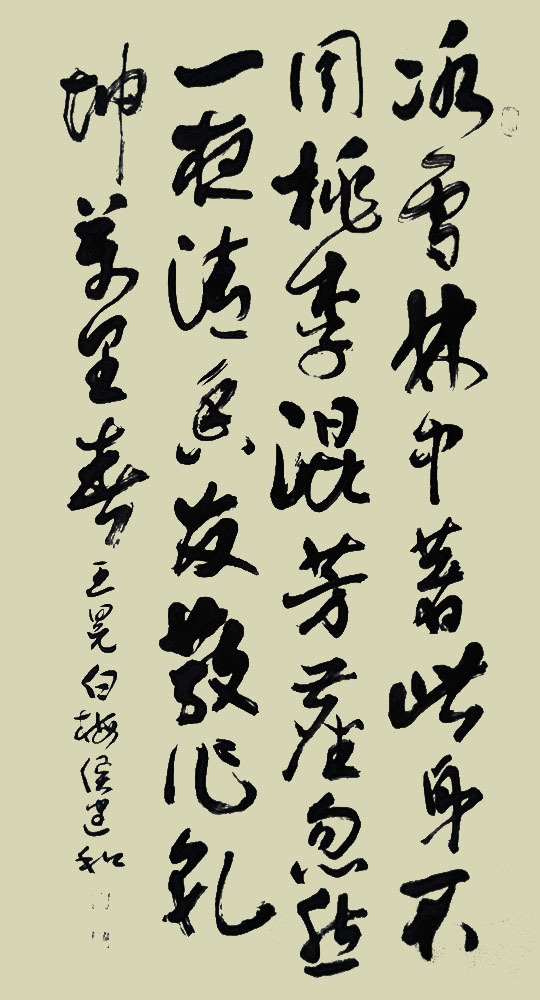 冰雪林中著此身不
同桃李混芳塵忽然
一夜清香发散作乾
坤萬里春 王冕白梅侯建和